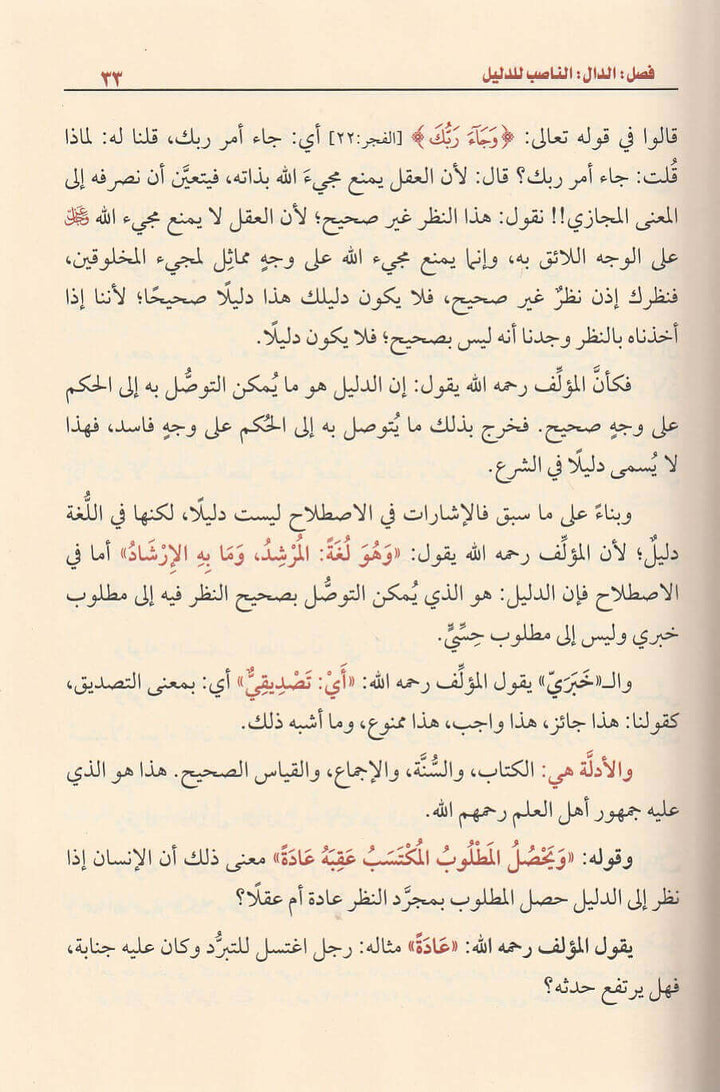 فصل: الدال: الناصب للدليل ٣٣
قالوا في قوله تعالى: ﴿وَجَآءَ رَبُّكَ﴾ [الفجر:٢٢] أي: جاء أمر ربك، قلنا له: لماذا
قُلت: جاء أمر ربك؟ قال: لأن العقل يمنع مجيءَ الله بذاته، فيتعيَّن أن نصرفه إلى
المعنى المجازي!! نقول: هذا النظر غير صحيح؛ لأن العقل لا يمنع مجيء الله عَزَّوَجَلَّ
على الوجه اللائق به، وإنما يمنع مجيء الله على وجهٍ مماثِل لمجيء المخلوقين،
فنظرك إذن نظرٌ غير صحيح، فلا يكون دليلك هذا دليلًا صحيحًا؛ لأننا إذا
أخذناه بالنظر وجدنا أنه ليس بصحيح؛ فلا يكون دليلًا.
فكأنَّ المؤلِّف رحمه الله يقول: إن الدليل هو ما يُمكن التوصُّل به إلى الحكم
على وجهٍ صحيح. فخرج بذلك ما يُتوصل به إلى الحُكم على وجهٍ فاسد، فهذا
لا يُسمى دليلًا في الشرع.
وبناءً على ما سبق فالإشارات في الاصطلاح ليست دليلًا، لكنها في اللُّغة
دليلٌ؛ لأن المؤلِّف رحمه الله يقول: «وَهُوَ لُغَةً: المُرْشِدُ، وَمَا بِهِ الإِرْشَادُ» أما في
الاصطلاح فإن الدليل: هو الذي يُمكن التوصُّل بصحيح النظر فيه إلى مطلوب
خبري وليس إلى مطلوب حِسِّيٍّ.
والـ«خَبَرَيّ» يقول المؤلِّف رحمه الله: «أَيْ: تَصْدِيقِيٌّ» أي: بمعنى التصديق،
كقولنا: هذا جائز، هذا واجب، هذا ممنوع، وما أشبه ذلك.
والأدلَّة هي: الكتاب، والسُّنَّة، والإجماع، والقياس الصحيح. هذا هو الذي
عليه جمهور أهل العلم رحمهم الله.
وقوله: «وَيَحْصُلُ المَطْلُوبُ المُكْتَسَبُ عَقِبَهُ عَادَةً» معنى ذلك أن الإنسان إذا
نظر إلى الدليل حصل المطلوب بمجرَّد النظر عادة أم عقلًا؟
يقول المؤلف رحمه الله: «عَادَةً» مثاله: رجل اغتسل للتبرُّد وكان عليه جنابة،
فهل يرتفع حدثه؟